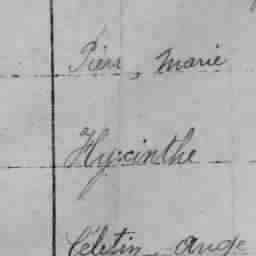 Pierr, Marie
Hyacinthe
Célestin Ange